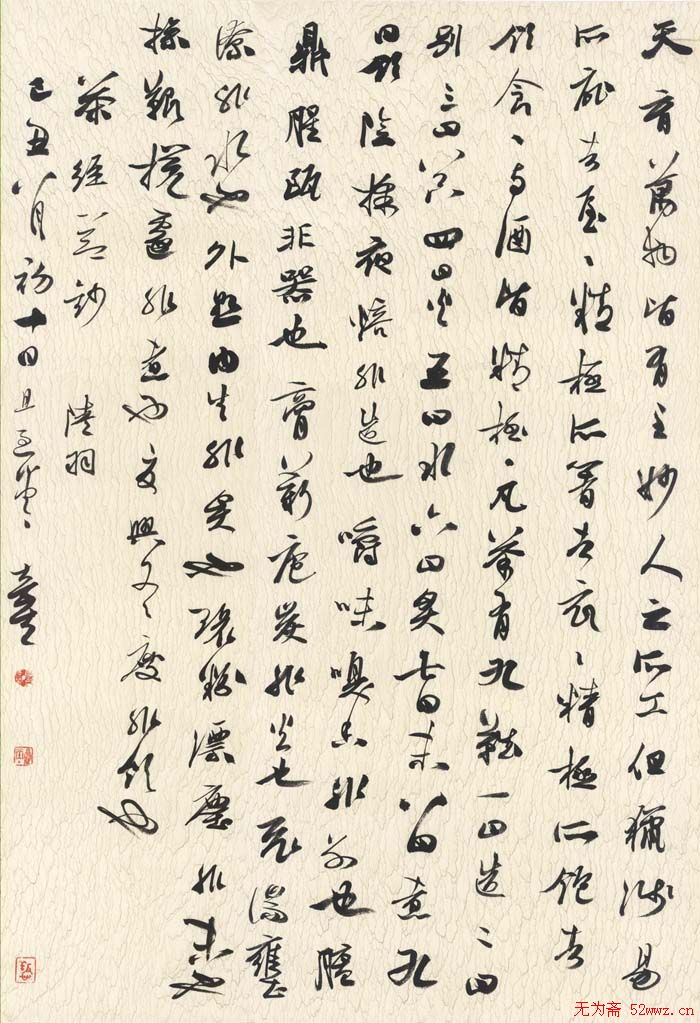 天育萬物皆有至妙人之所工但獵淺易
所庇者屋〻精極所著者衣〻精極所飽者
飲食〻与酒皆精極〻凡茶有九難一曰造二曰
別三曰器四曰火五曰水六曰炙七曰末八曰煮九
曰飲陰採夜焙非造也嚼味嗅香非別也膻
鼎腥甌非器也膏薪庖炭非火也飛湍壅
潦非水也外熟內生非炙也碧粉縹塵非末也
操艱攪遽非煮也夏興冬廢非飲也
茶經鈔 陸羽
己丑八月初十日
无为斋 52wwz.cn